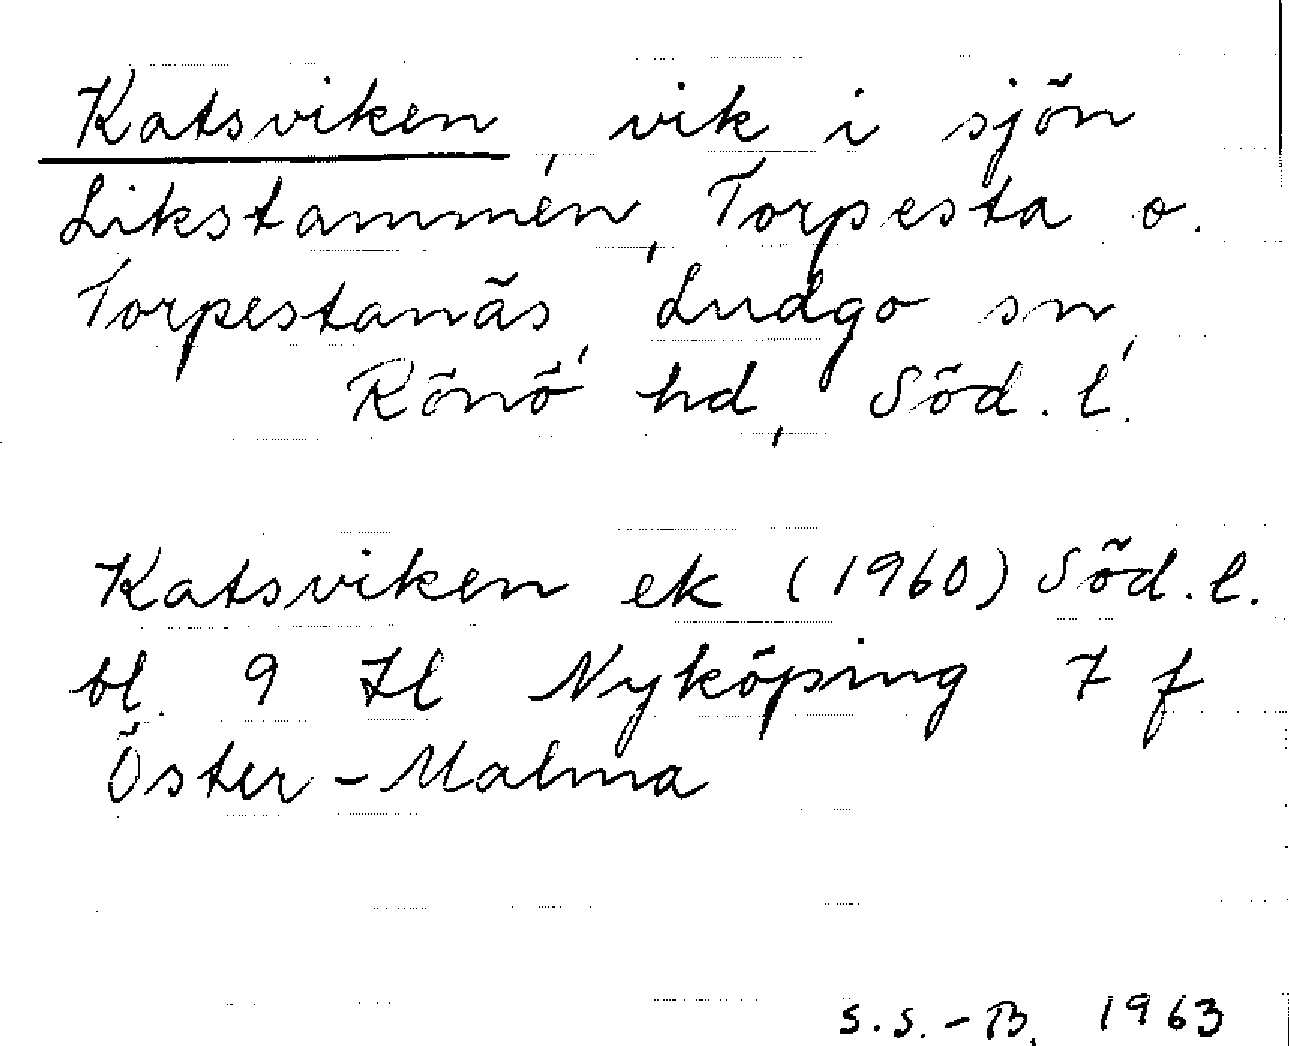 Katsviken, vik i sjön
Likstammen, Torpesta o.
Torpestanäs, Ludgo sn,
Rönö hd, Söd. l.
Katsviken ek (1960) Söd. l.
bl. 9 Il Nyköping 7 f
Öster-Malma
S.S.-B. 1963